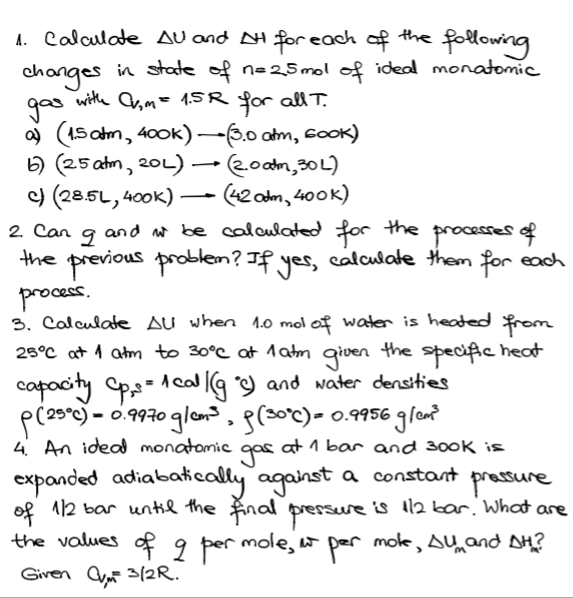 1. Calculate ΔU and ΔH for each of the following
changes in state of n=2,5mol of ideal monatomic
gas with Cv,m = 1.5R for all T.
a) (1.5atm, 400K) → (3.0 atm, 600K)
b) (2.5 atm, 20L) → (2.0atm, 30L)
c) (28.5L, 400K) → (42 atm, 400K)
2. Can q and w be calculated for the processes of
the previous problem? If yes, calculate them for each
process.
3. Calculate ΔU when 1.0 mol of water is heated from
25°C at 1 atm to 30°C at 1atm given the specific heat
capacity Cp,s = 1cal/(g °C) and water densities
ρ(25°C) = 0.9970 g/cm³, ρ(30°C) = 0.9956 g/cm³
4. An ideal monatomic gas at 1 bar and 300K is
expanded adiabatically against a constant pressure
of 1/2 bar until the final pressure is 1/2 bar. What are
the values of q per mole, w per mole, ΔUm and ΔHm?
Given Cv,m= 3/2R.